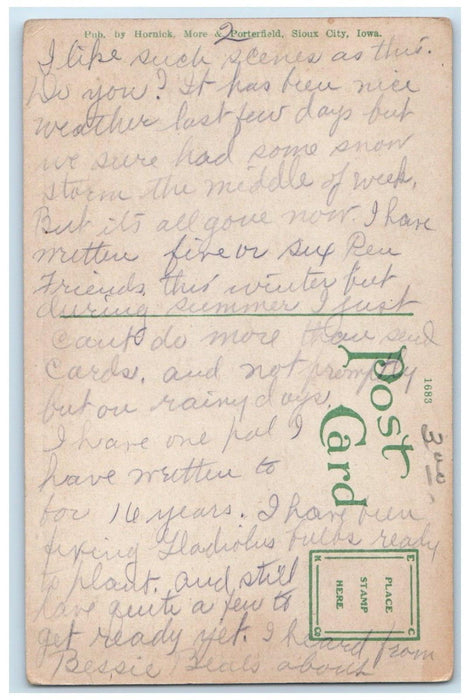 Pub. by Hornick, More & Porterfield, Sioux City, Iowa.
2
I like such scenes as this.
Do you? It has been nice
weather last few days but
we sure had some snow
storm the middle of week.
But it's all gone now. I have
written five or six Pen
Friends this winter but
during summer I just
can't do more than send
cards, and not promptly
but on rainy days.
I have one pal I
have written to
for 16 years. I have been
fixing Gladiolus bulbs ready
to plant. and still
have quite a few to
get ready yet. I heard from
Bessie Beals about
Post
Card
1683
PLACE
STAMP
HERE